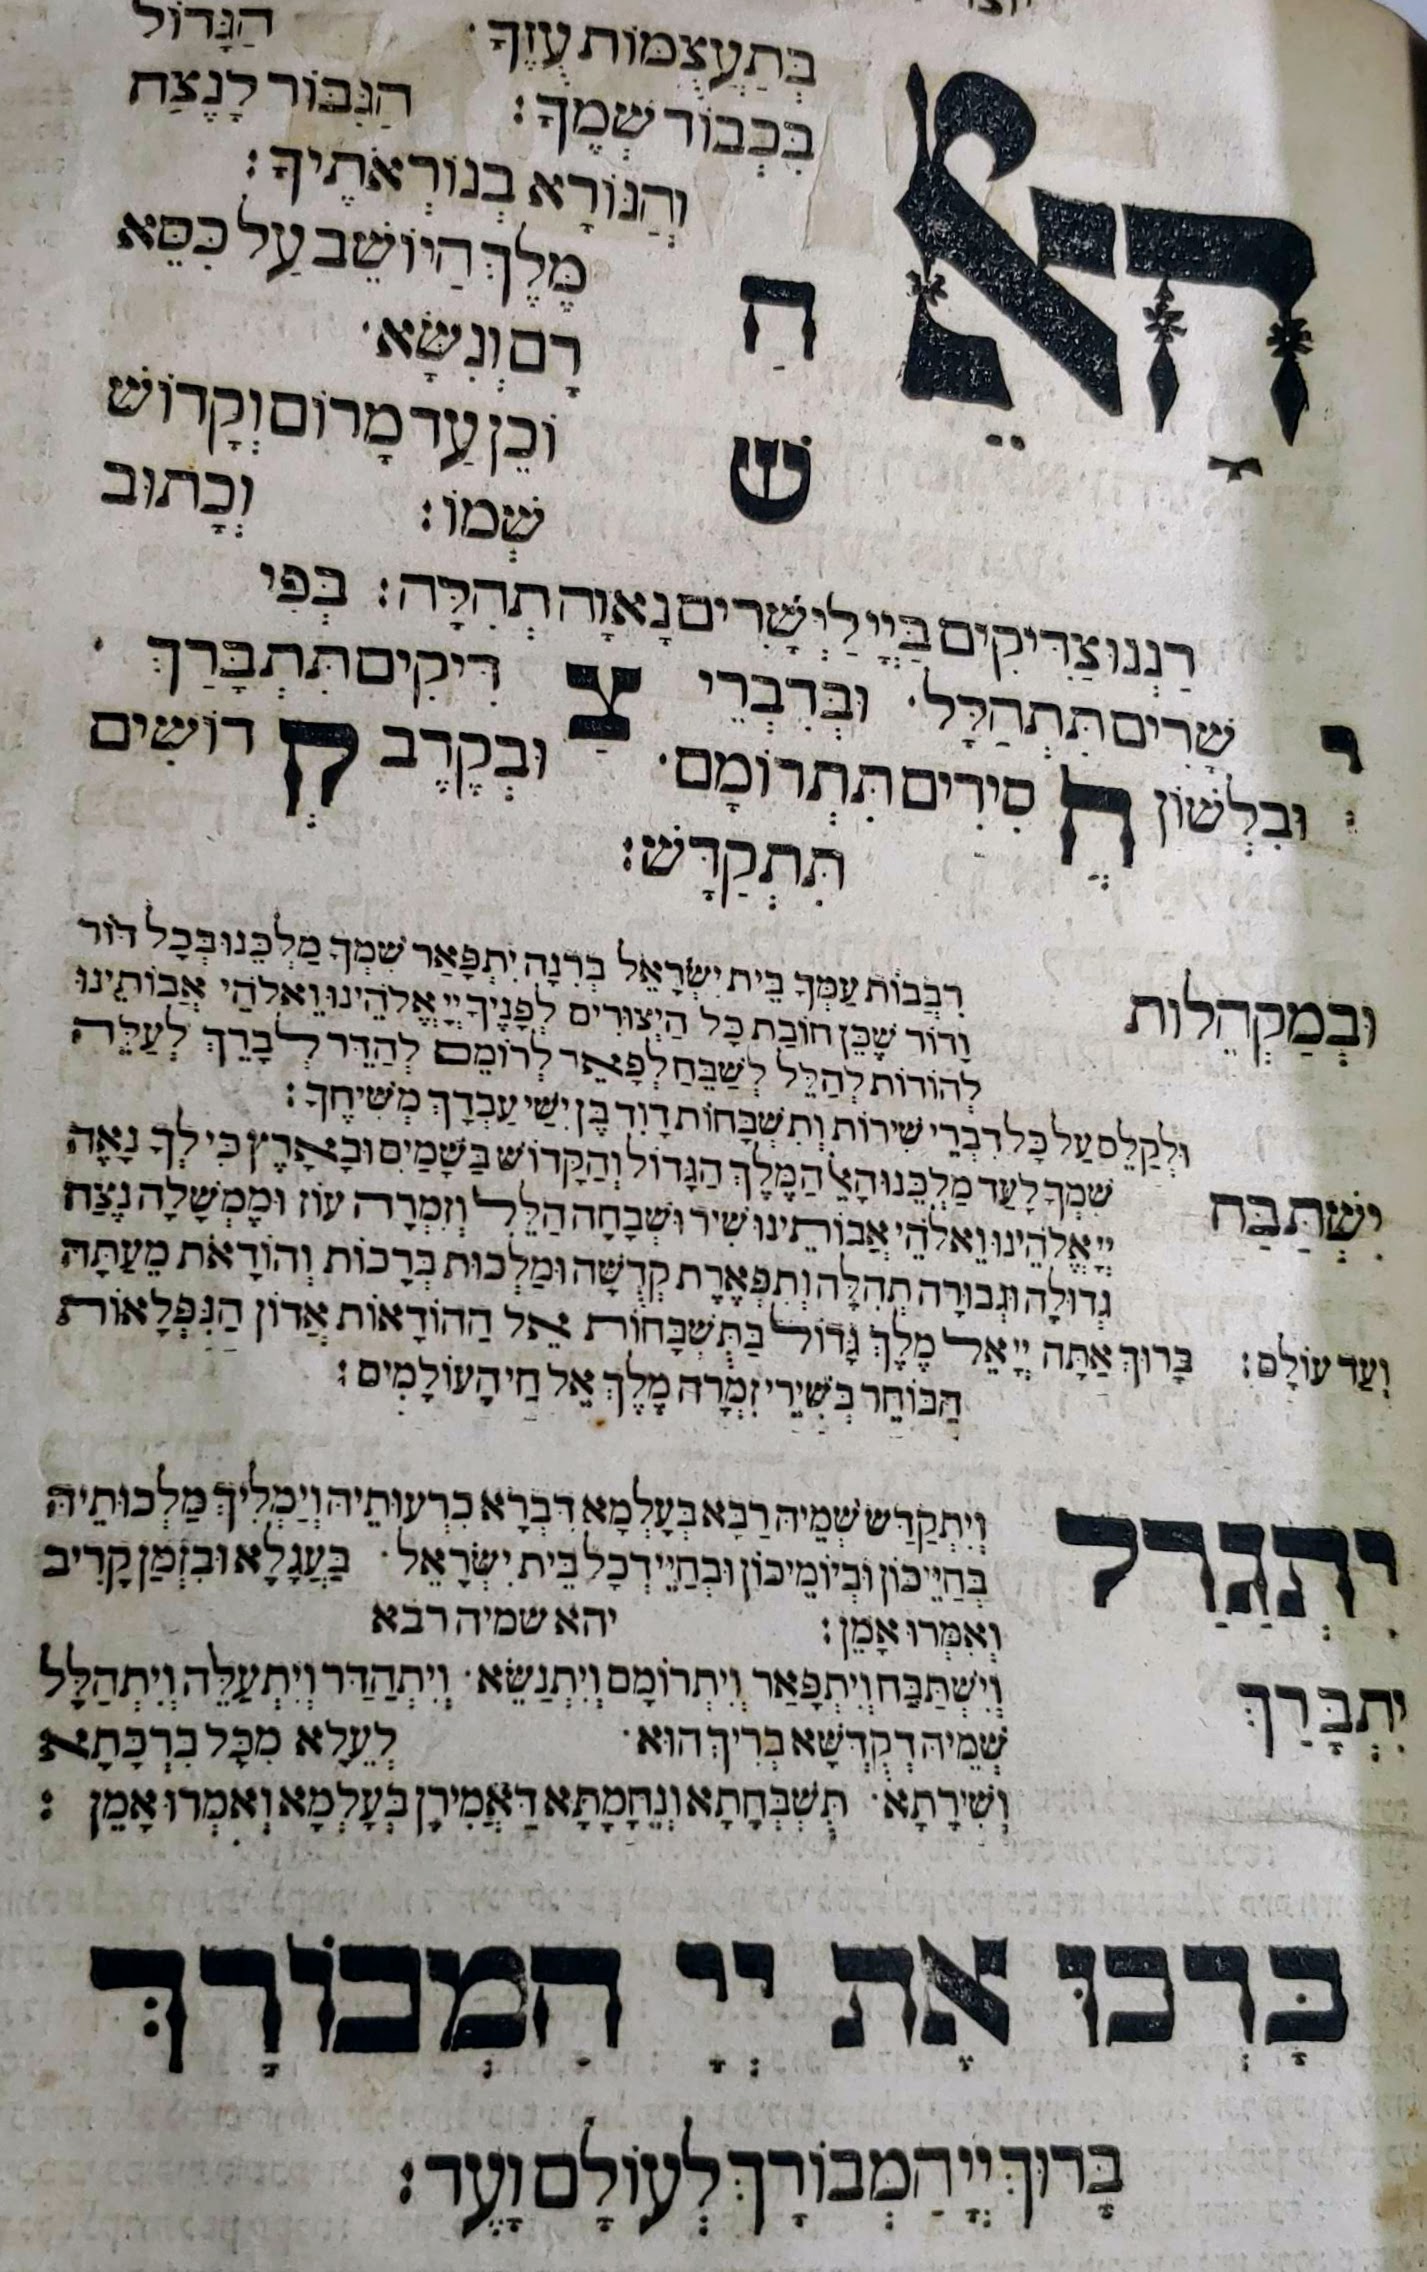 הָאֵ בְּתַעֲצֻמוֹת עֻזֶּךָ · הַגָּדוֹל
בִּכְבוֹד שְׁמֶךָ : הַגִּבּוֹר לָנֶצַח
וְהַנּוֹרָא בְּנוֹרְאֹתֶיךָ :
הַ מֶּלֶךְ הַיּוֹשֵׁב עַל כִּסֵּא
רָם וְנִשָּׂא ·
שׁ וֹכֵן עַד מָרוֹם וְקָדוֹשׁ
שְׁמוֹ : וְכָתוּב
רַנְּנוּ צַדִּיקִים בַּיְיָ לַיְשָׁרִים נָאוָה תְהִלָּה : בְּפִי
יְ שָׁרִים תִּתְהַלָּל · וּבְדִבְרֵי צַ דִּיקִים תִּתְבָּרַךְ ·
וּבִלְשׁוֹן חֲ סִירִים תִּתְרוֹמָם · וּבְקֶרֶב קְ דוֹשִׁים
תִּתְקַדָּשׁ :
וּבְמַקְהֵלוֹת רִבְבוֹת עַמְּךָ בֵּית יִשְׂרָאֵל בְּרִנָּה יִתְפָּאַר שִׁמְךָ מַלְכֵּנוּ בְּכָל דּוֹר
וָדוֹר שֶׁכֵּן חוֹבַת כָּל הַיְצוּרִים לְפָנֶיךָ יְיָ אֱלֹהֵינוּ וֵאלֹהֵי אֲבוֹתֵינוּ
לְהוֹדוֹת לְהַלֵּל לְשַׁבֵּחַ לְפָאֵר לְרוֹמֵם לְהַדֵּר לְבָרֵךְ לְעַלֵּה
וּלְקַלֵּס עַל כָּל דִּבְרֵי שִׁירוֹת וְתִשְׁבָּחוֹת דָּוִד בֶּן יִשַׁי עַבְדָּךְ מְשִׁיחֶךָ :
יִשְׁתַּבַּח שִׁמְךָ לָעַד מַלְכֵּנוּ הָאֵל הַמֶּלֶךְ הַגָּדוֹל וְהַקָּדוֹשׁ בַּשָּׁמַיִם וּבָאָרֶץ כִּי לְךָ נָאֶה
יְיָ אֱלֹהֵינוּ וֵאלֹהֵי אֲבוֹתֵינוּ שִׁיר וּשְׁבָחָה הַלֵּל וְזִמְרָה עוֹז וּמֶמְשָׁלָה נֶצַח
גְּדוּלָּה וּגְבוּרָה תְּהִלָּה וְתִפְאֶרֶת קְדֻשָּׁה וּמַלְכוּת בְּרָכוֹת וְהוֹדָאֹת מֵעַתָּה
וְעַד עוֹלָם : בָּרוּךְ אַתָּה יְיָ אֵל מֶלֶךְ גָּדוֹל בַּתִּשְׁבָּחוֹת אֵל הַהוֹדָאוֹת אֲדוֹן הַנִּפְלָאוֹת
הַבּוֹחֵר בְּשִׁירֵי זִמְרָה מֶלֶךְ אֵל חַי הָעוֹלָמִים :
יִתְגַּדַּל וְיִתְקַדַּשׁ שְׁמֵיהּ רַבָּא בְּעָלְמָא דִּבְרָא כִרְעוּתֵיהּ וְיַמְלִיךְ מַלְכוּתֵיהּ
בְּחַיֵּיכוֹן וּבְיוֹמֵיכוֹן וּבְחַיֵּי דְכָל בֵּית יִשְׂרָאֵל · בַּעֲגָלָא וּבִזְמַן קָרִיב
וְאִמְרוּ אָמֵן : יהא שמיה רבא
יִתְבָּרַךְ וְיִשְׁתַּבַּח וְיִתְפָּאַר וְיִתְרוֹמָם וְיִתְנַשֵּׂא · וְיִתְהַדַּר וְיִתְעַלֵּה וְיִתְהַלָּל
שְׁמֵיהּ דְקֻדְשָׁא בְּרִיךְ הוּא · לְעֵלָּא מִכָּל בִּרְכָתָא
וְשִׁירָתָא · תֻּשְׁבְּחָתָא וְנֶחָמָתָא דַּאֲמִירָן בְּעָלְמָא וְאִמְרוּ אָמֵן :
בָּרְכוּ אֶת יְיָ הַמְבוֹרָךְ
בָּרוּךְ יְיָ הַמְּבוֹרָךְ לְעוֹלָם וָעֶד :